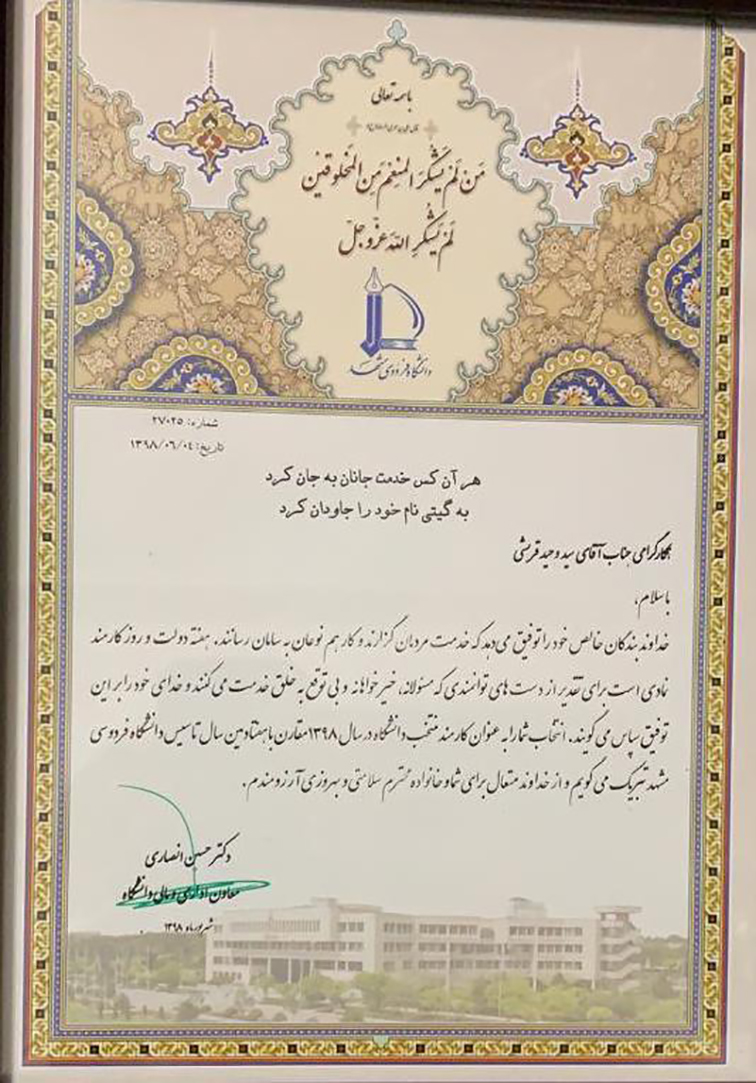 باسمه تعالی
مَن لَم یَشکُرِ المُنعِمَ مِنَ المَخلوقینَ
لَم یَشکُرِ اللهَ عَزَّوجَلَّ
دانشگاه فردوسی مشهد
شماره: ۲۷۰۲۵
تاریخ: ۱۳۹۸/۰۶/۰۴
هر آن کس خدمت جانان به جان کرد
به گیتی نام خود را جاودان کرد
همکار گرامی جناب آقای سید وحید قریشی
با سلام،
خداوند بندگان خالص خود را توفیق می‌دهد که خدمت مردمان گزارند و کار هم نوعان به سامان رسانند. هفته دولت و روز کارمند
نمادی است برای تقدیر از دست های توانمندی که مسئولانه، خیرخواهانه و بی توقع به خلق خدمت می کنند و خدای خود را بر این
توفیق سپاس می گویند. انتخاب شما را به عنوان کارمند منتخب دانشگاه در سال ۱۳۹۸ مقارن با هفتادمین سال تاسیس دانشگاه فردوسی
مشهد تبریک می گویم و از خداوند متعال برای شما و خانواده محترم سلامتی و بهروزی آرزومندم.
دکتر حسن انصاری
معاون اداری و مالی دانشگاه
شهریورماه ۱۳۹۸